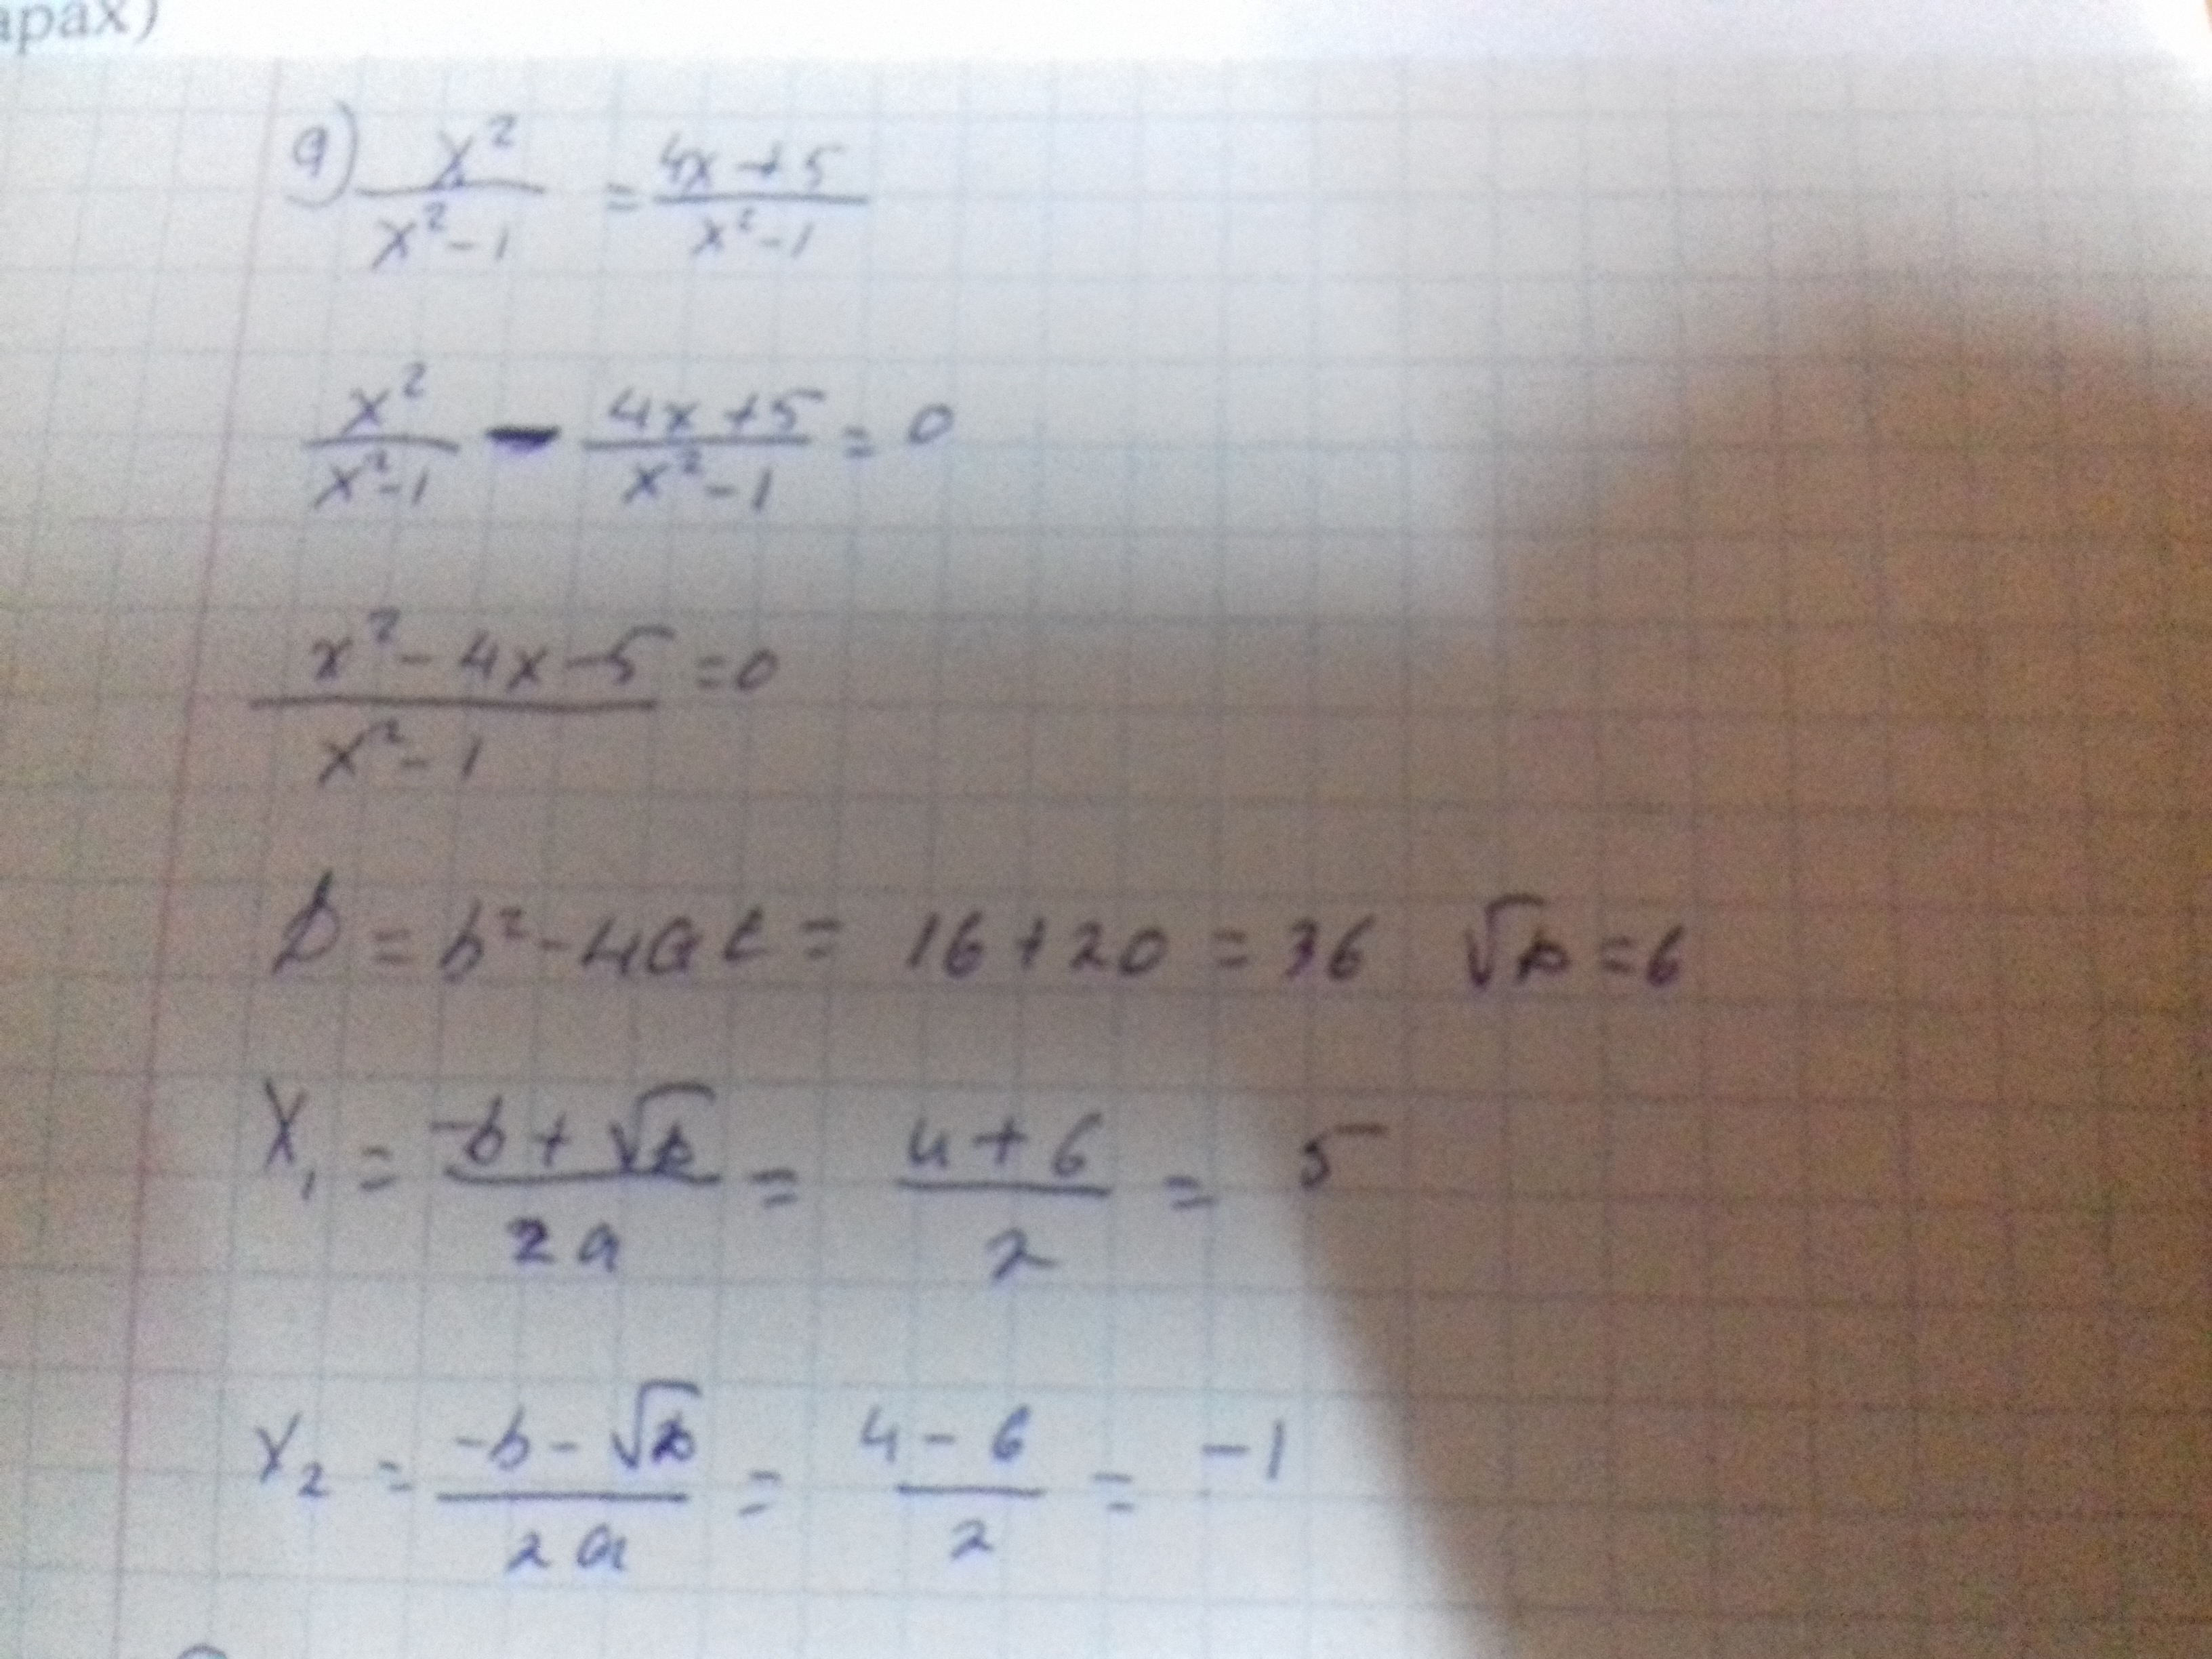 арах)
a) x²/(x²-1) = (4x+5)/(x²-1)
x²/(x²-1) - (4x+5)/(x²-1) = 0
(x²-4x-5)/(x²-1) = 0
D = b²-4ac = 16+20 = 36 √D = 6
X₁ = (-b+√D)/(2a) = (4+6)/2 = 5
X₂ = (-b-√D)/(2a) = (4-6)/2 = -1